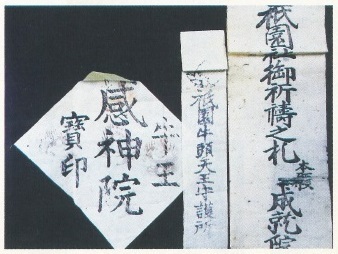 祇園社御祈禱之札
成乾院
祇園牛頭天王守護所
牛王
感神院
寶印